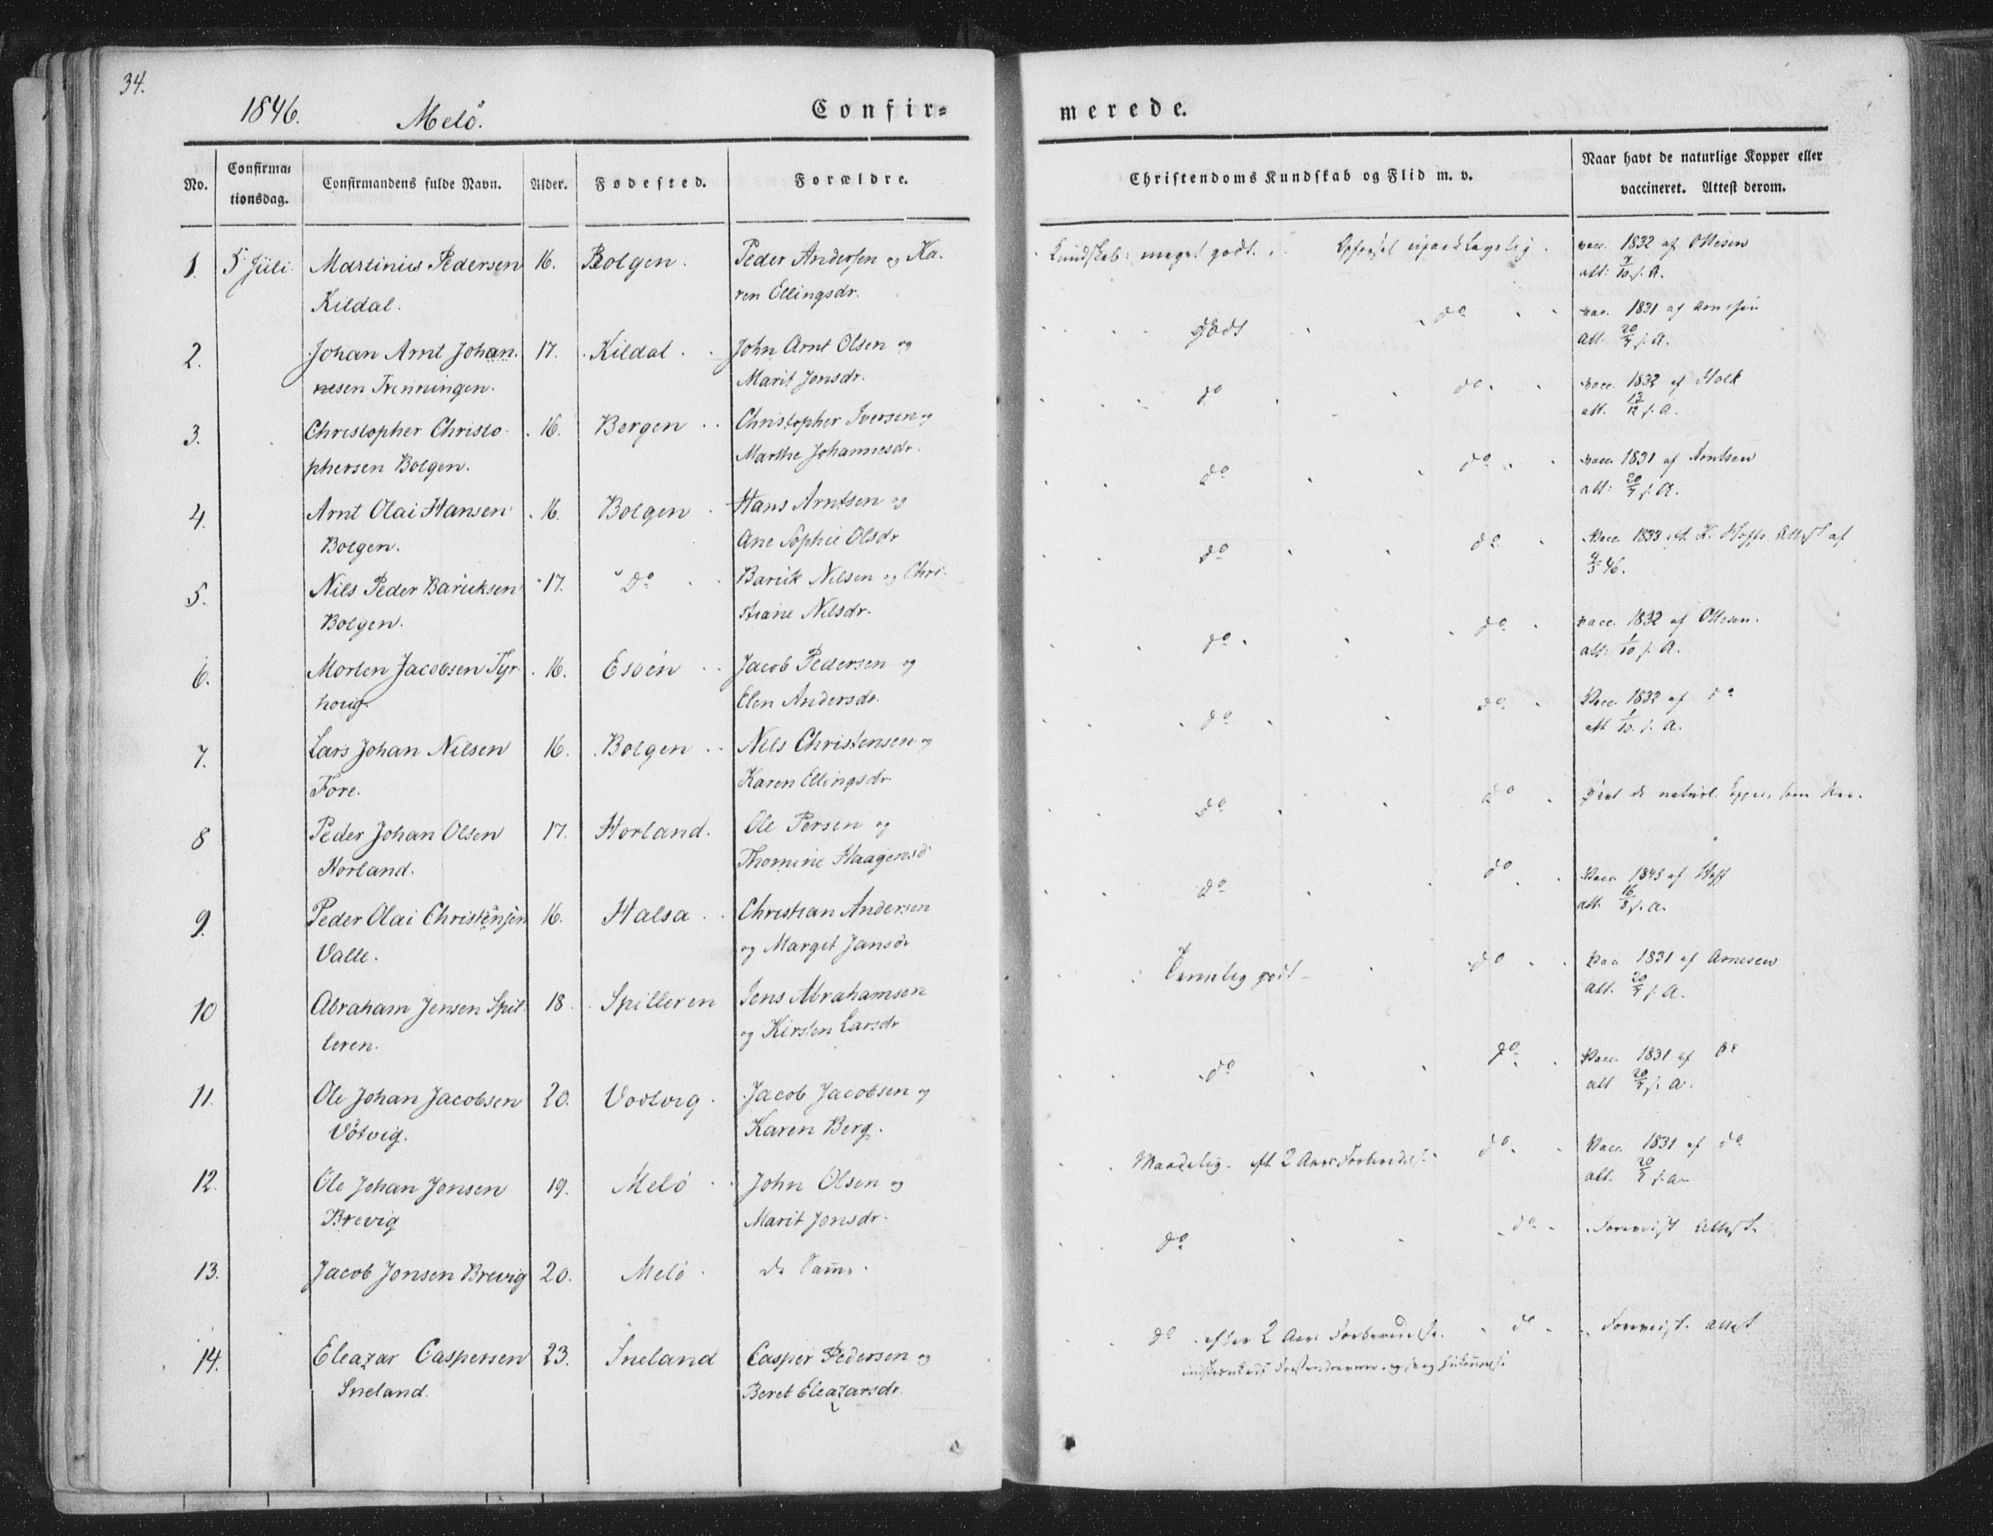 34.
1846. Melö. Confir=
merede.
No.
Confirma=
tionsdag.
Confirmandens fulde Navn.
Alder.
Fødested.
Forældre.
Christendoms Kundskab og Flid m. v.
Naar havt de naturlige Kopper eller
vaccineret. Attest derom.
1. 5 Juli Martinius Pedersen 16. Bolgen. Peder Andersen og Ka- Kundskab: meget godt. vacc. 1832 af Ottesen
Kildal. ren Ellingsdr. att:
2. Johan Arnt Johan- 17. Kildal. John Arnt Olsen og godt do vacc. 1831 af
nesen Trenningen. Marit Jonsdr. att. 20/7 s. A.
3. Christopher Christo- 16. Bergen Christopher Iversen og do do vacc. 1832 af Holk
phersen Bolgen. Marthe Johannesdr. att. 13/12 s. A.
4. Arnt Olai Hansen 16. Bolgen Hans Arntsen og do do vacc. 1831 af Arntsen
Bolgen. Ane Sophie Olsdr att: 20/7 s. A.
5. Nils Peder Baricksen 17. Do Barick Nilsen og Chri- do do Vacc. 1833 Attest af
Bolgen. stiane Nilsdr. 46.
6. Morten Jacobsen Tyr- 16. Esøen Jacob Pedersen og do do vacc. 1832 af Ottesen.
houg. Elen Andersdr. att: 1/10 s. A.
7. Lars Johan Nilsen 16. Bolgen Nils Christensen og do do Vacc. 1832 af do
Fore. Karen Ellingsdr att 1/10 s. A.
8 Peder Johan Olsen 17. Horland. Ole Persen og do do de naturl.
Horland. Thomine Haagensd
9. Peder Olai Christensen 16. Halsa Christian Andersen do do Vacc. 1845 af Hoff
Valle. og Marget Jansdr att. 16/8 s. A.
10 Abraham Jensen Spil- 18. Spilleren Jens Abrahamsen Temelig godt do Vacc 1831 af Arnesen
leren. og Kirsten Larsdr att. 20/7 s. A.
11. Ole Johan Jacobsen 20. Vodtvig Jacob Jacobsen og do do Vacc. 1831 af do
Vötvig. Karen Berg. att 20/7 s. A.
12. Ole Johan Jonsen 19. Melö John Olsen og Maadelig. eft. 2 Aars Forberedelse do Vacc. 1831 af do
Brevig Marit Jonsdr. att. 20/7 s. A.
13. Jacob Jonsen Brevig 20. Melö de Samme. do do Foreviist Attest.
14. Eleazar Caspersen 23. Sneland Casper Pedersen og do efter 2 Aars Forberedelse. do Foreviist attest
Sneland. Beret Eleazarsdr.